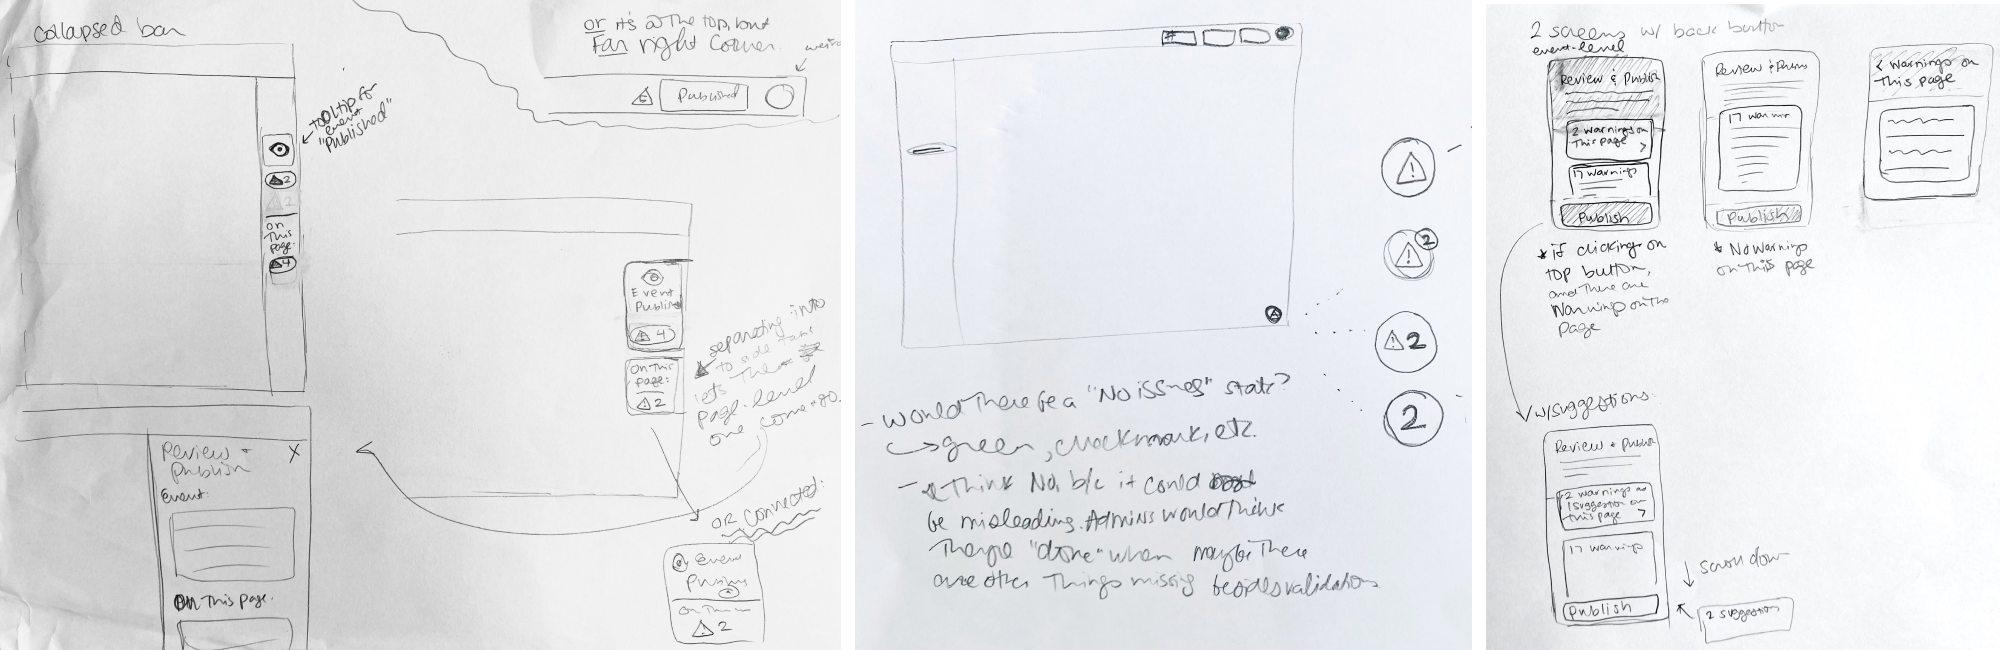 collapsed bar
or it's @ the top, but
Far right corner.
Published
tooltip for
event
"Published"
2
2
on
This
page:
4
Event
Publish
4
On This
page:
2
separating into
to side tabs
lets the
page-level
one come + go.
OR connected:
Event
2
Review +
publish
X
Event:
On This page.
2
2
2
- would there be a "No issues" state?
green, checkmark, etc.
- I think No, b/c it could
be misleading. Admins would think
they're "done" when maybe there
are other things missing besides validations
2 screens w/ back button
event-level
Review & Publish
2 warnings on
This page >
17 warnings
Publish
* if clicking on
top button,
and there are
warnings on the
page
Review &
17 warnin
Publish
* No warnings
on this page
< Warnings on
This page
w/suggestions:
Review + Publish
2 warnings
1 suggestion on
this page >
17 warnings
Publish
scroll down
2 suggestions